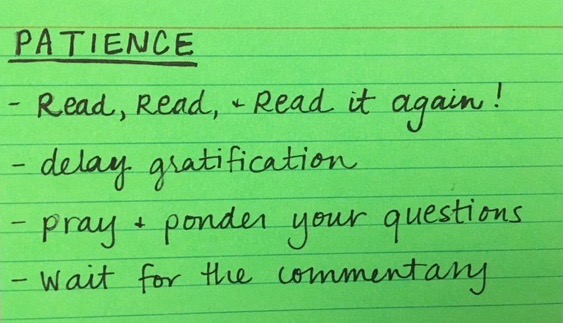 PATIENCE
- Read, Read, + Read it again!
- delay gratification
- pray + ponder your questions
- wait for the commentary